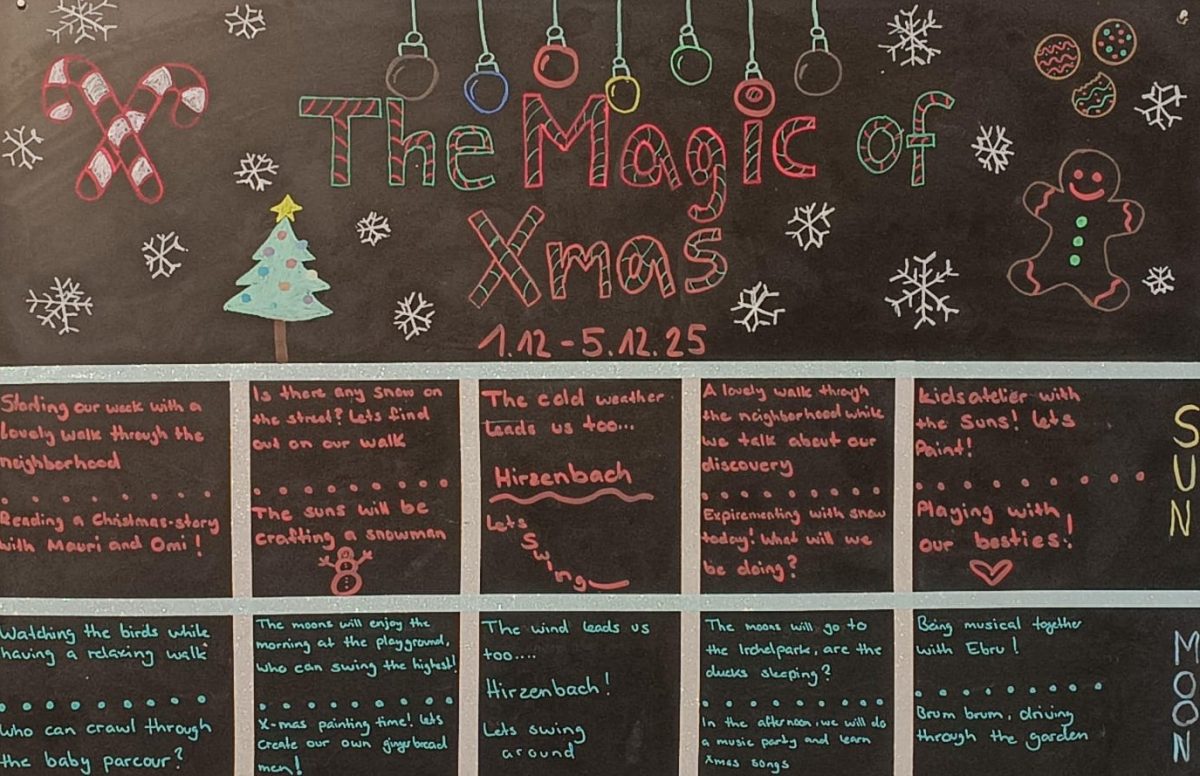 The Magic of
Xmas
1.12 - 5.12.25
Starting our week with a
lovely walk through the
neighborhood
Reading a Christmas-story
with Mauri and Omi!
Is there any snow on
the street? Lets find
out on our walk
The suns will be
crafting a snowman
The cold weather
leads us too...
Hirzenbach
Lets
Swing
A lovely walk through
the neighborhood while
we talk about our
discovery
Expirementing with snow
today! What will we
be doing?
kidsatelier with
the Suns! Lets
Paint!
Playing with
our besties!
SUN
Watching the birds while
having a relaxing walk
Who can crawl through
the baby parcour?
The moons will enjoy the
morning at the playground,
who can swing the highest!
X-mas painting time! lets
create our own gingerbread
men!
The wind leads us
too....
Hirzenbach!
Lets swing
around
The moons will go to
the Irchelpark, are the
ducks sleeping?
In the afternoon, we will do
a music party and learn
Xmas songs
Being musical together
with Ebru!
Brum brum, driving
through the garden
MOON